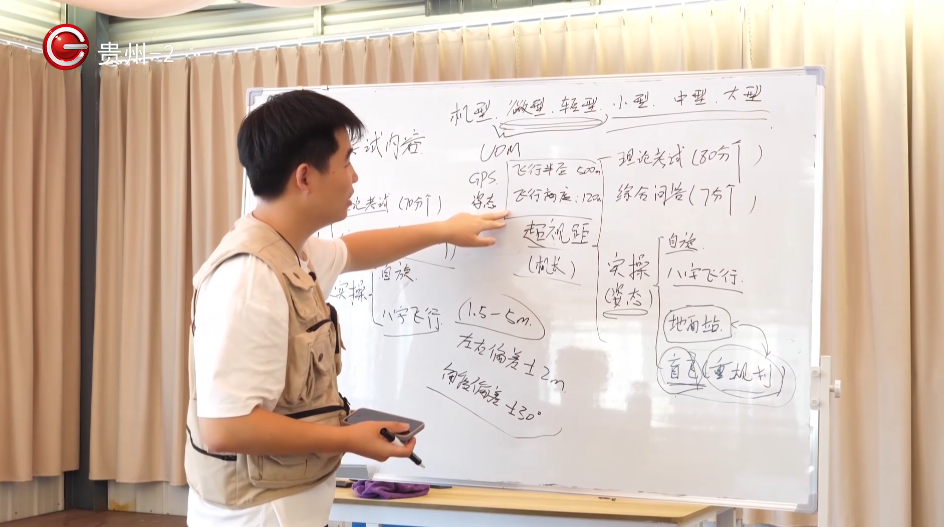 贵州-2
机型. 微型. 轻型. 小型. 中型. 大型
UOM
考试内容
GPS.
姿态
飞行半径 500m
飞行高度: 120m
超视距
(机长)
论考试 (70分)
实操
自旋.
八字飞行.
(1.5-5m.
左右偏差±2m
角度偏差±30°
理论考试 (80分)
综合问答 (7分)
实操
(姿态)
自旋.
八字飞行.
地面站.
盲飞 (重规划)